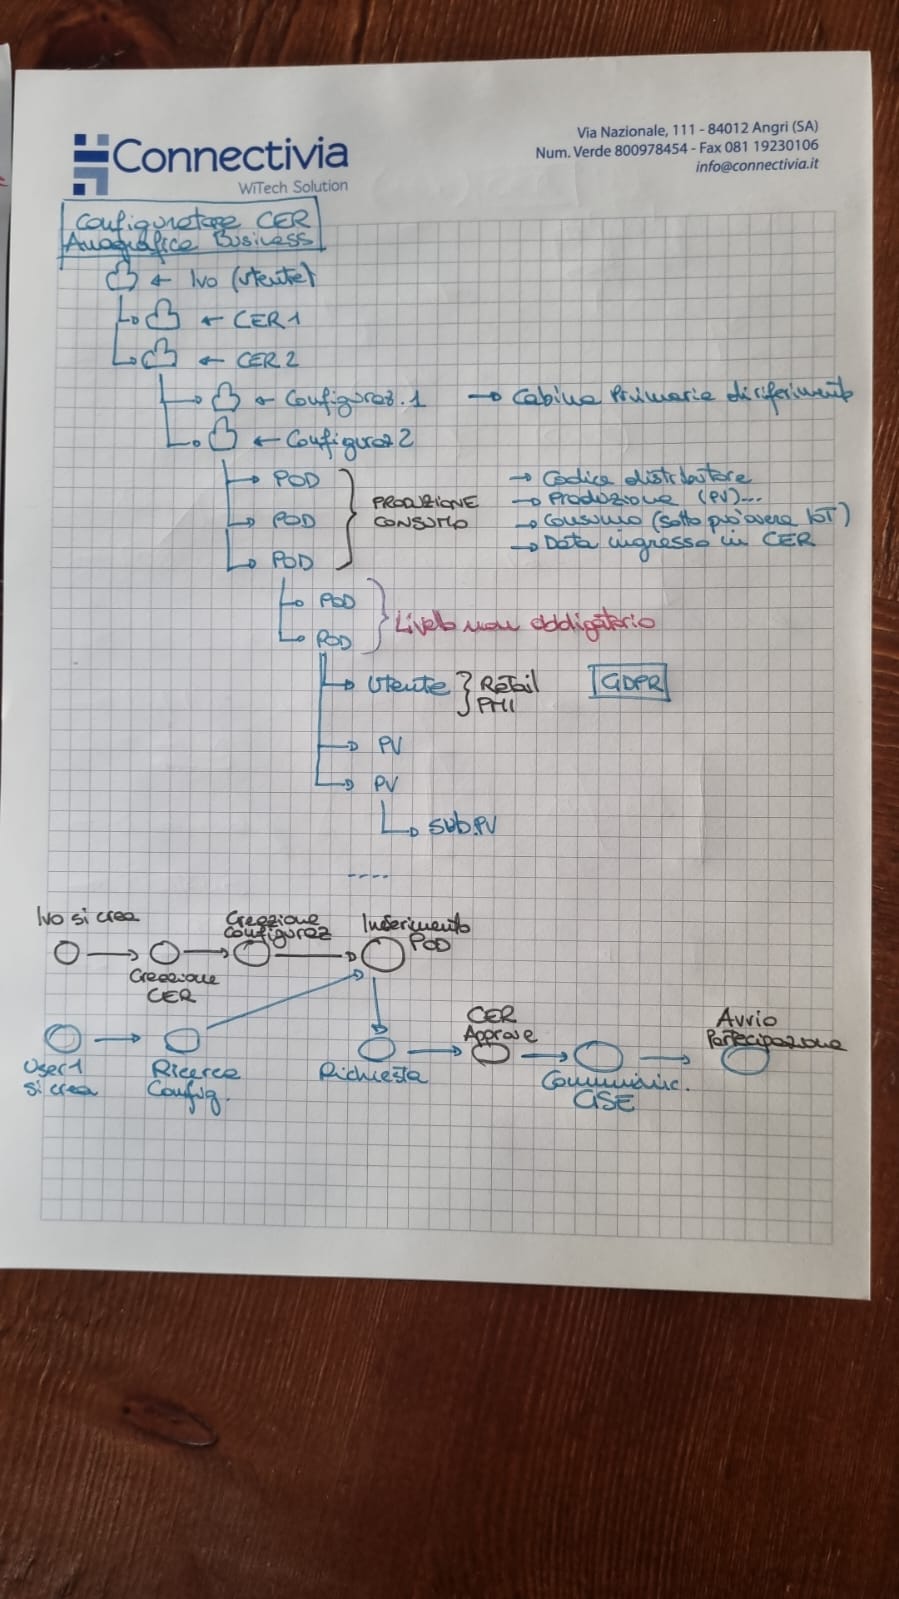 Connectivia
WiTech Solution
Via Nazionale, 111 - 84012 Angri (SA)
Num. Verde 800978454 - Fax 081 19230106
info@connectivia.it
Configuratore CER
Anagrafica Business
← Ivo (utente)
← CER 1
← CER 2
← Configuraz. 1 → Cabina Primaria di riferimento
← Configuraz 2
POD
POD
POD
PRODUZIONE
CONSUMO
→ Codice distributore
→ Produzione (PV)...
→ Consumo (sotto può avere IoT)
→ Data ingresso in CER
POD
POD
Livello non obbligatorio
Utente
Retail
PMI
GDPR
PV
PV
SUB.PV
....
Ivo si crea
Creazione
CER
Creazione
Configuraz
Inserimento
POD
User 1
si crea
Ricerca
Config.
Richiesta
CER
Approva
Comunic.
GSE
Avvio
Partecipazione